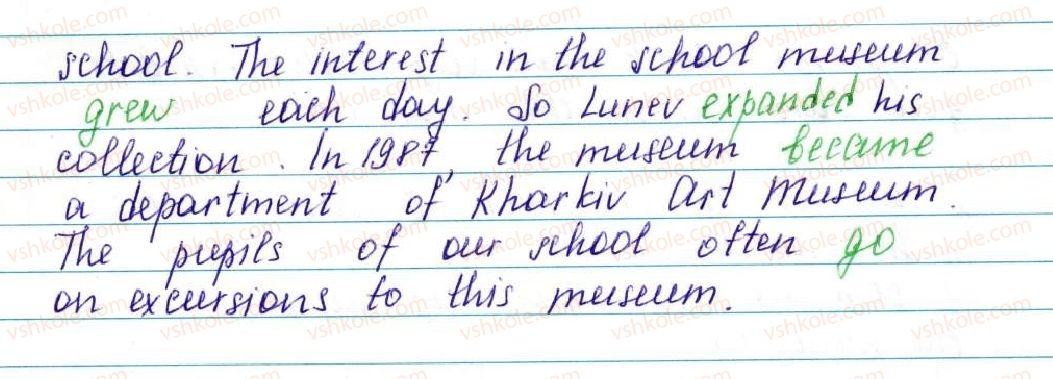 school. The interest in the school museum
grew each day. So Lunev expanded his
collection. In 1987, the museum became
a department of Kharkiv Art Museum.
The pupils of our school often go
on excursions to this museum.